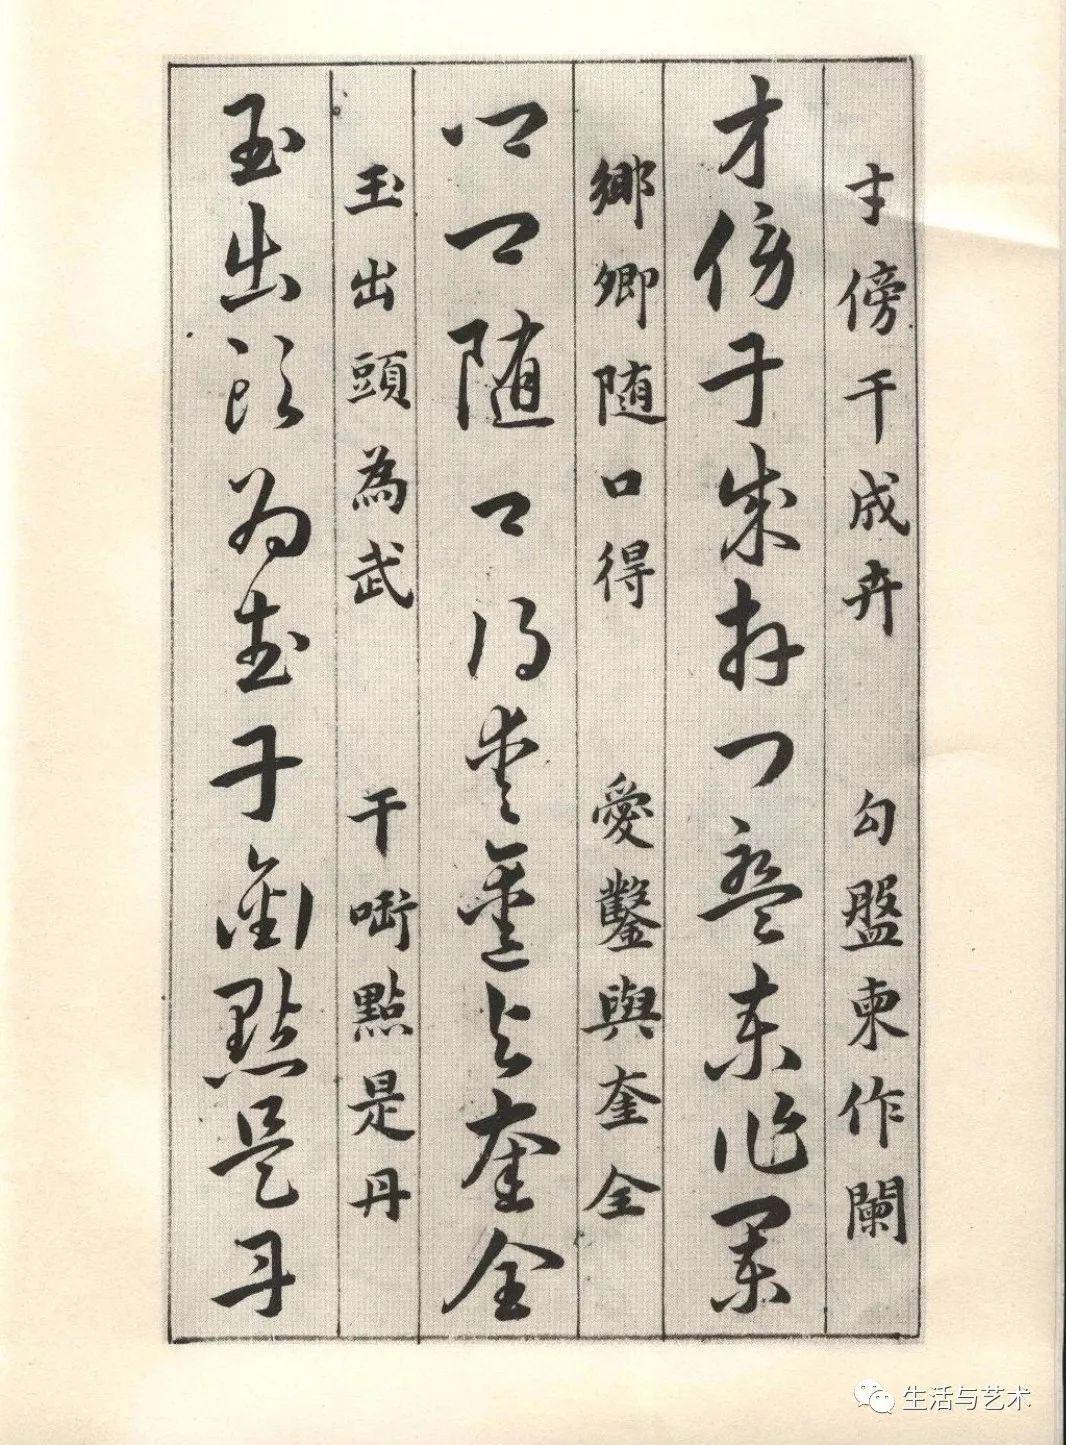 才傍干成卉 勾盤柬作闌
才傍干成卉勾盤柬作闌
鄉卿随口得 愛鑿與奎全
鄉卿随口得愛鑿與奎全
玉出頭為武 干啣點是丹
玉出頭為武干銜點是丹
生活与艺术